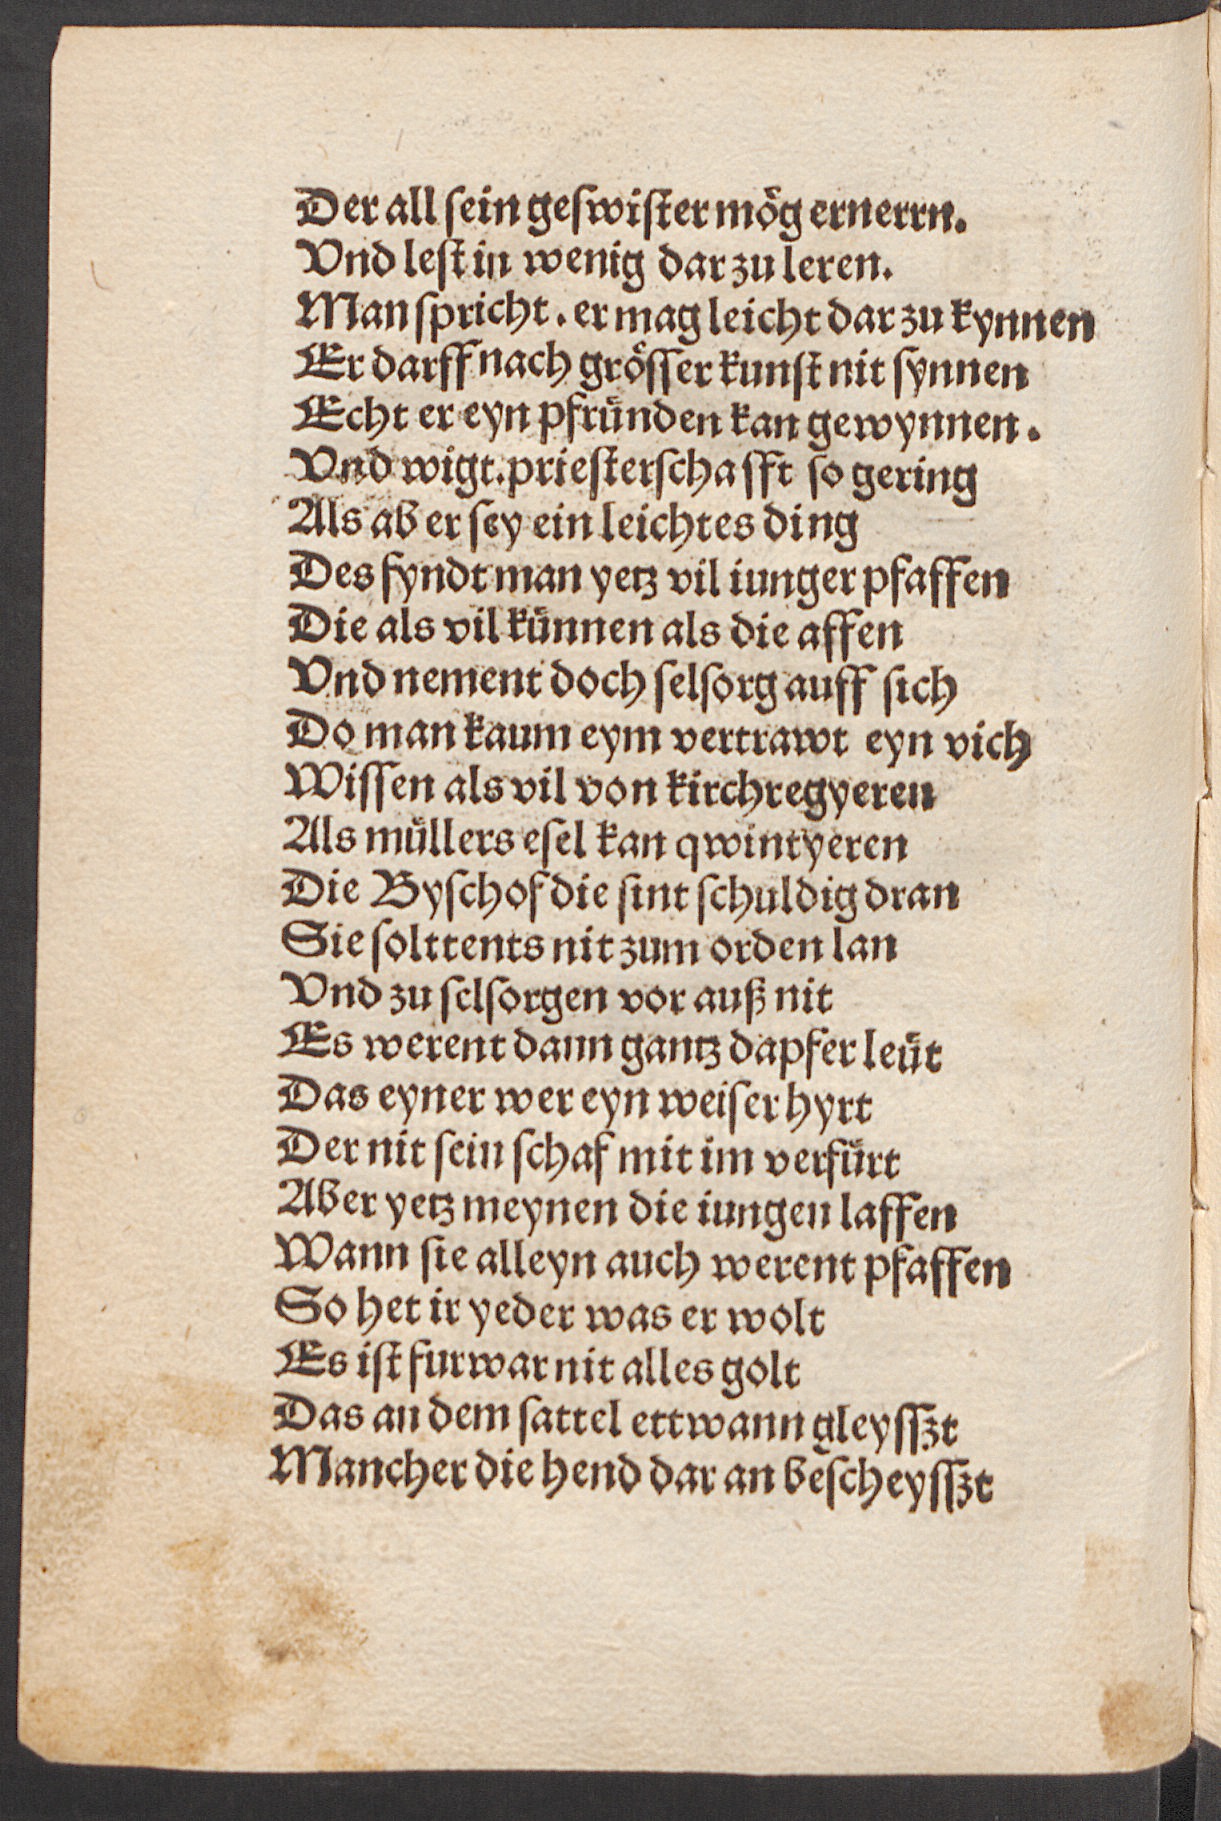 Der all ſein geſwiſter mög ernerrn.
Vnd leſt in wenig dar zu leren.
Man ſpricht. er mag leicht dar zu kynnen
Er darff nach gröſſer kunſt nit ſynnen
Echt er eyn pfründen kan gewynnen.
Vnd wigt. prieſterſchafft ſo gering
Als ab er ſey ein leichtes ding
Des fyndt man yetz vil iunger pfaffen
Die als vil künnen als die affen
Vnd nement doch ſelſorg auff ſich
Do man kaum eym vertrawt eyn vich
Wiſſen als vil von kirchregyeren
Als müllers eſel kan qwintyeren
Die Byſchof die ſint ſchuldig dran
Sie ſolttents nit zum orden lan
Vnd zu ſelſorgen vor auß nit
Es werent dann gantz dapfer leüt
Das eyner wer eyn weiſer hyrt
Der nit ſein ſchaf mit im verfürt
Aber yetz meynen die iungen laffen
Wann ſie alleyn auch werent pfaffen
So het ir yeder was er wolt
Es iſt furwar nit alles golt
Das an dem ſattel ettwann gleyſſzt
Mancher die hend dar an beſcheyſſzt